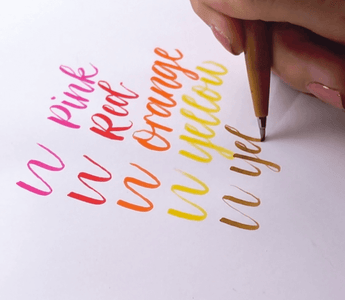 pink
Red
orange
yellow
yel